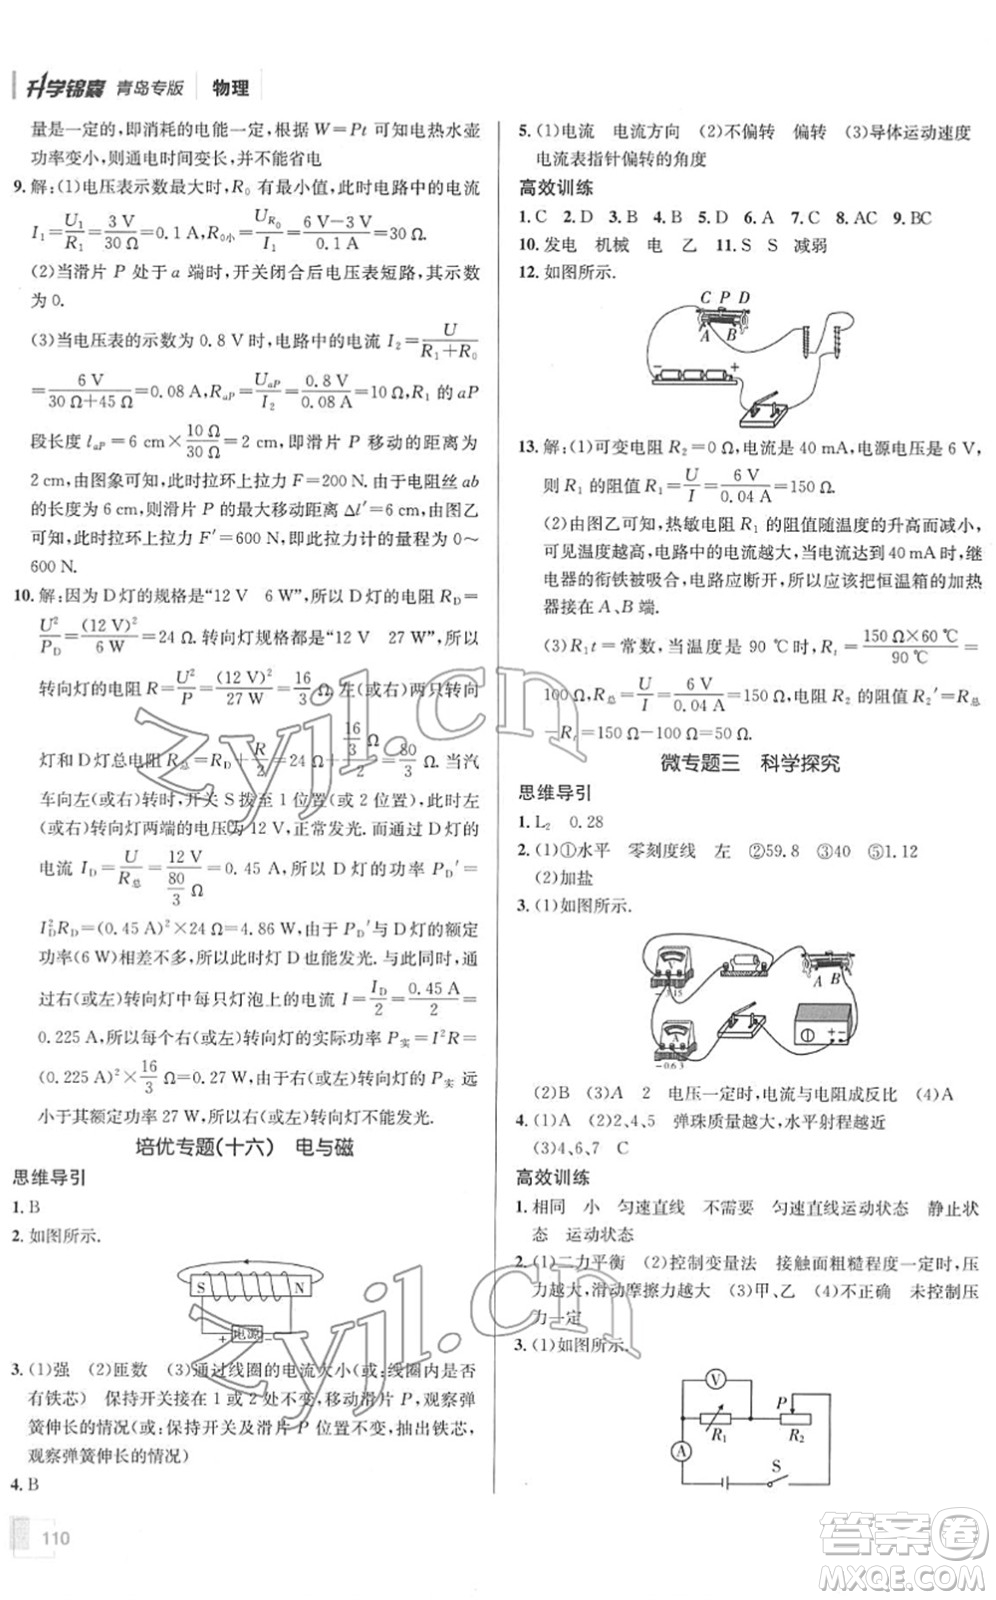 升学锦囊 青岛专版 物理
量是一定的,即消耗的电能一定,根据 W=Pt 可知电热水壶
功率变小,则通电时间变长,并不能省电
9. 解:(1)电压表示数最大时,R₀ 有最小值,此时电路中的电流
I₁=U₁/R₁=3 V/30 Ω=0.1 A,R₀小=U_R₀/I₁=(6 V-3 V)/0.1 A=30 Ω.
(2)当滑片 P 处于 a 端时,开关闭合后电压表短路,其示数
为 0.
(3)当电压表的示数为 0.8 V 时,电路中的电流 I₂=U/(R₁+R₀)
=6 V/(30 Ω+45 Ω)=0.08 A,R_aP=U_aP/I₂=0.8 V/0.08 A=10 Ω,R₁ 的 aP
段长度 l_aP=6 cm×10 Ω/30 Ω=2 cm,即滑片 P 移动的距离为
2 cm,由图象可知,此时拉环上拉力 F=200 N.由电阻丝 ab
的长度为 6 cm,则滑片 P 的最大移动距离 Δl′=6 cm,由图乙
可知,此时拉环上拉力 F′=600 N,即此拉力计的量程为 0~
600 N.
10. 解:因为 D 灯的规格是“12 V 6 W”,所以 D 灯的电阻 R_D=
U²/P_D=(12 V)²/6 W=24 Ω.转向灯规格都是“12 V 27 W”,所以
转向灯的电阻 R=U²/P=(12 V)²/27 W=16/3 Ω.左(或右)两只转向
灯和 D 灯总电阻 R总=R_D+R/2=24 Ω+(16/3 Ω)/2=80/3 Ω.当汽
车向左(或右)转时,开关 S 拨至 1 位置(或 2 位置),此时左
(或右)转向灯两端的电压为 12 V,正常发光.而通过 D 灯的
电流 I_D=U/R总=12 V/(80/3 Ω)=0.45 A,所以 D 灯的功率 P_D′=
I_D²R_D=(0.45 A)²×24 Ω=4.86 W,由于 P_D′与 D 灯的额定
功率(6 W)相差不多,所以此时灯 D 也能发光.此时,通过
右(或左)转向灯中每只灯泡上的电流 I=I_D/2=0.45 A/2=
0.225 A,所以每个右(或左)转向灯的实际功率 P实=I²R=
(0.225 A)²×16/3 Ω=0.27 W,由于右(或左)转向灯的 P实 远
小于其额定功率 27 W,所以右(或左)转向灯不能发光.
培优专题(十六) 电与磁
思维导引
1. B
2. 如图所示.
S N
+ 电源 −
3. (1)强 (2)匝数 (3)通过线圈的电流大小(或:线圈内是否
有铁芯) 保持开关接在 1 或 2 处不变,移动滑片 P,观察弹
簧伸长的情况(或:保持开关及滑片 P 位置不变,抽出铁芯,
观察弹簧伸长的情况)
4. B
110
5. (1)电流 电流方向 (2)不偏转 偏转 (3)导体运动速度
电流表指针偏转的角度
高效训练
1. C 2. D 3. B 4. B 5. D 6. A 7. C 8. AC 9. BC
10. 发电 机械 电 乙 11. S S 减弱
12. 如图所示.
C P D
A B
− +
13. 解:(1)可变电阻 R₂=0 Ω,电流是 40 mA,电源电压是 6 V,
则 R₁ 的阻值 R₁=U/I=6 V/0.04 A=150 Ω.
(2)由图乙可知,热敏电阻 R₁ 的阻值随温度的升高而减小,
可见温度越高,电路中的电流越大,当电流达到 40 mA 时,继
电器的衔铁被吸合,电路应断开,所以应该把恒温箱的加热
器接在 A、B 端.
(3)R₁t=常数,当温度是 90 ℃时,R_t=150 Ω×60 ℃/90 ℃=
100 Ω,R总=U/I=6 V/0.04 A=150 Ω,电阻 R₂ 的阻值 R₂′=R总
−R_t=150 Ω−100 Ω=50 Ω.
微专题三 科学探究
思维导引
1. L₂ 0.28
2. (1)①水平 零刻度线 左 ②59.8 ③40 ⑤1.12
(2)加盐
3. (1)如图所示.
V
− 3 15
A B
A
−0.6 3
(2)B (3)A 2 电压一定时,电流与电阻成反比 (4)A
4. (1)A (2)2、4、5 弹珠质量越大,水平射程越近
(3)4、6、7 C
高效训练
1. 相同 小 匀速直线 不需要 匀速直线运动状态 静止状
态 运动状态
2. (1)二力平衡 (2)控制变量法 接触面粗糙程度一定时,压
力越大,滑动摩擦力越大 (3)甲、乙 (4)不正确 未控制压
力一定
3. (1)如图所示.
V
R₁ P R₂
A
S
zyjl.cn
zyjl.cn
答案卷
MXQE.COM